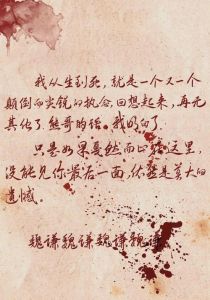 我从生到死，就是一个又一个
颠倒而尖锐的执念，回想起来，再无
其他了。熊哥的话，我明白了。
只是如果戛然而止在这里，
没能见你最后一面，依然是莫大的
遗憾。
魏谦魏谦魏谦魏谦